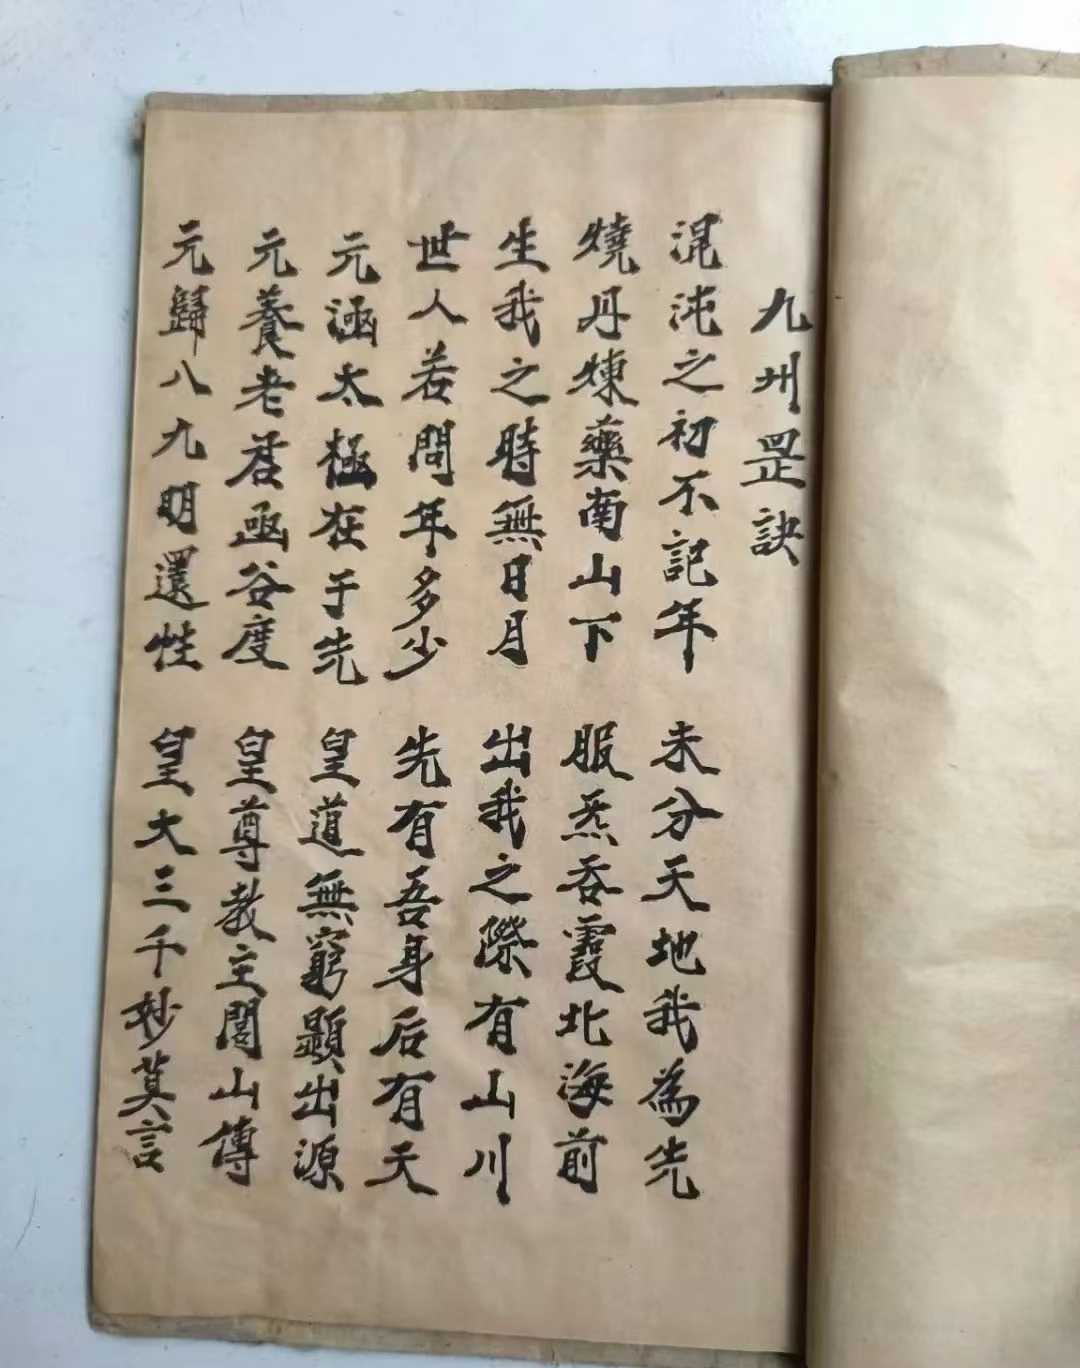 九州罡訣
混沌之初不記年 未分天地我為先
燒丹煉藥南山下 服炁吞霞北海前
生我之時無日月 出我之際有山川
世人若問年多少 先有吾身后有天
元涵太極在于先 皇道無窮顯出源
元養老君函谷度 皇尊教主閭山傳
元歸八九明還性 皇大三千妙莫言